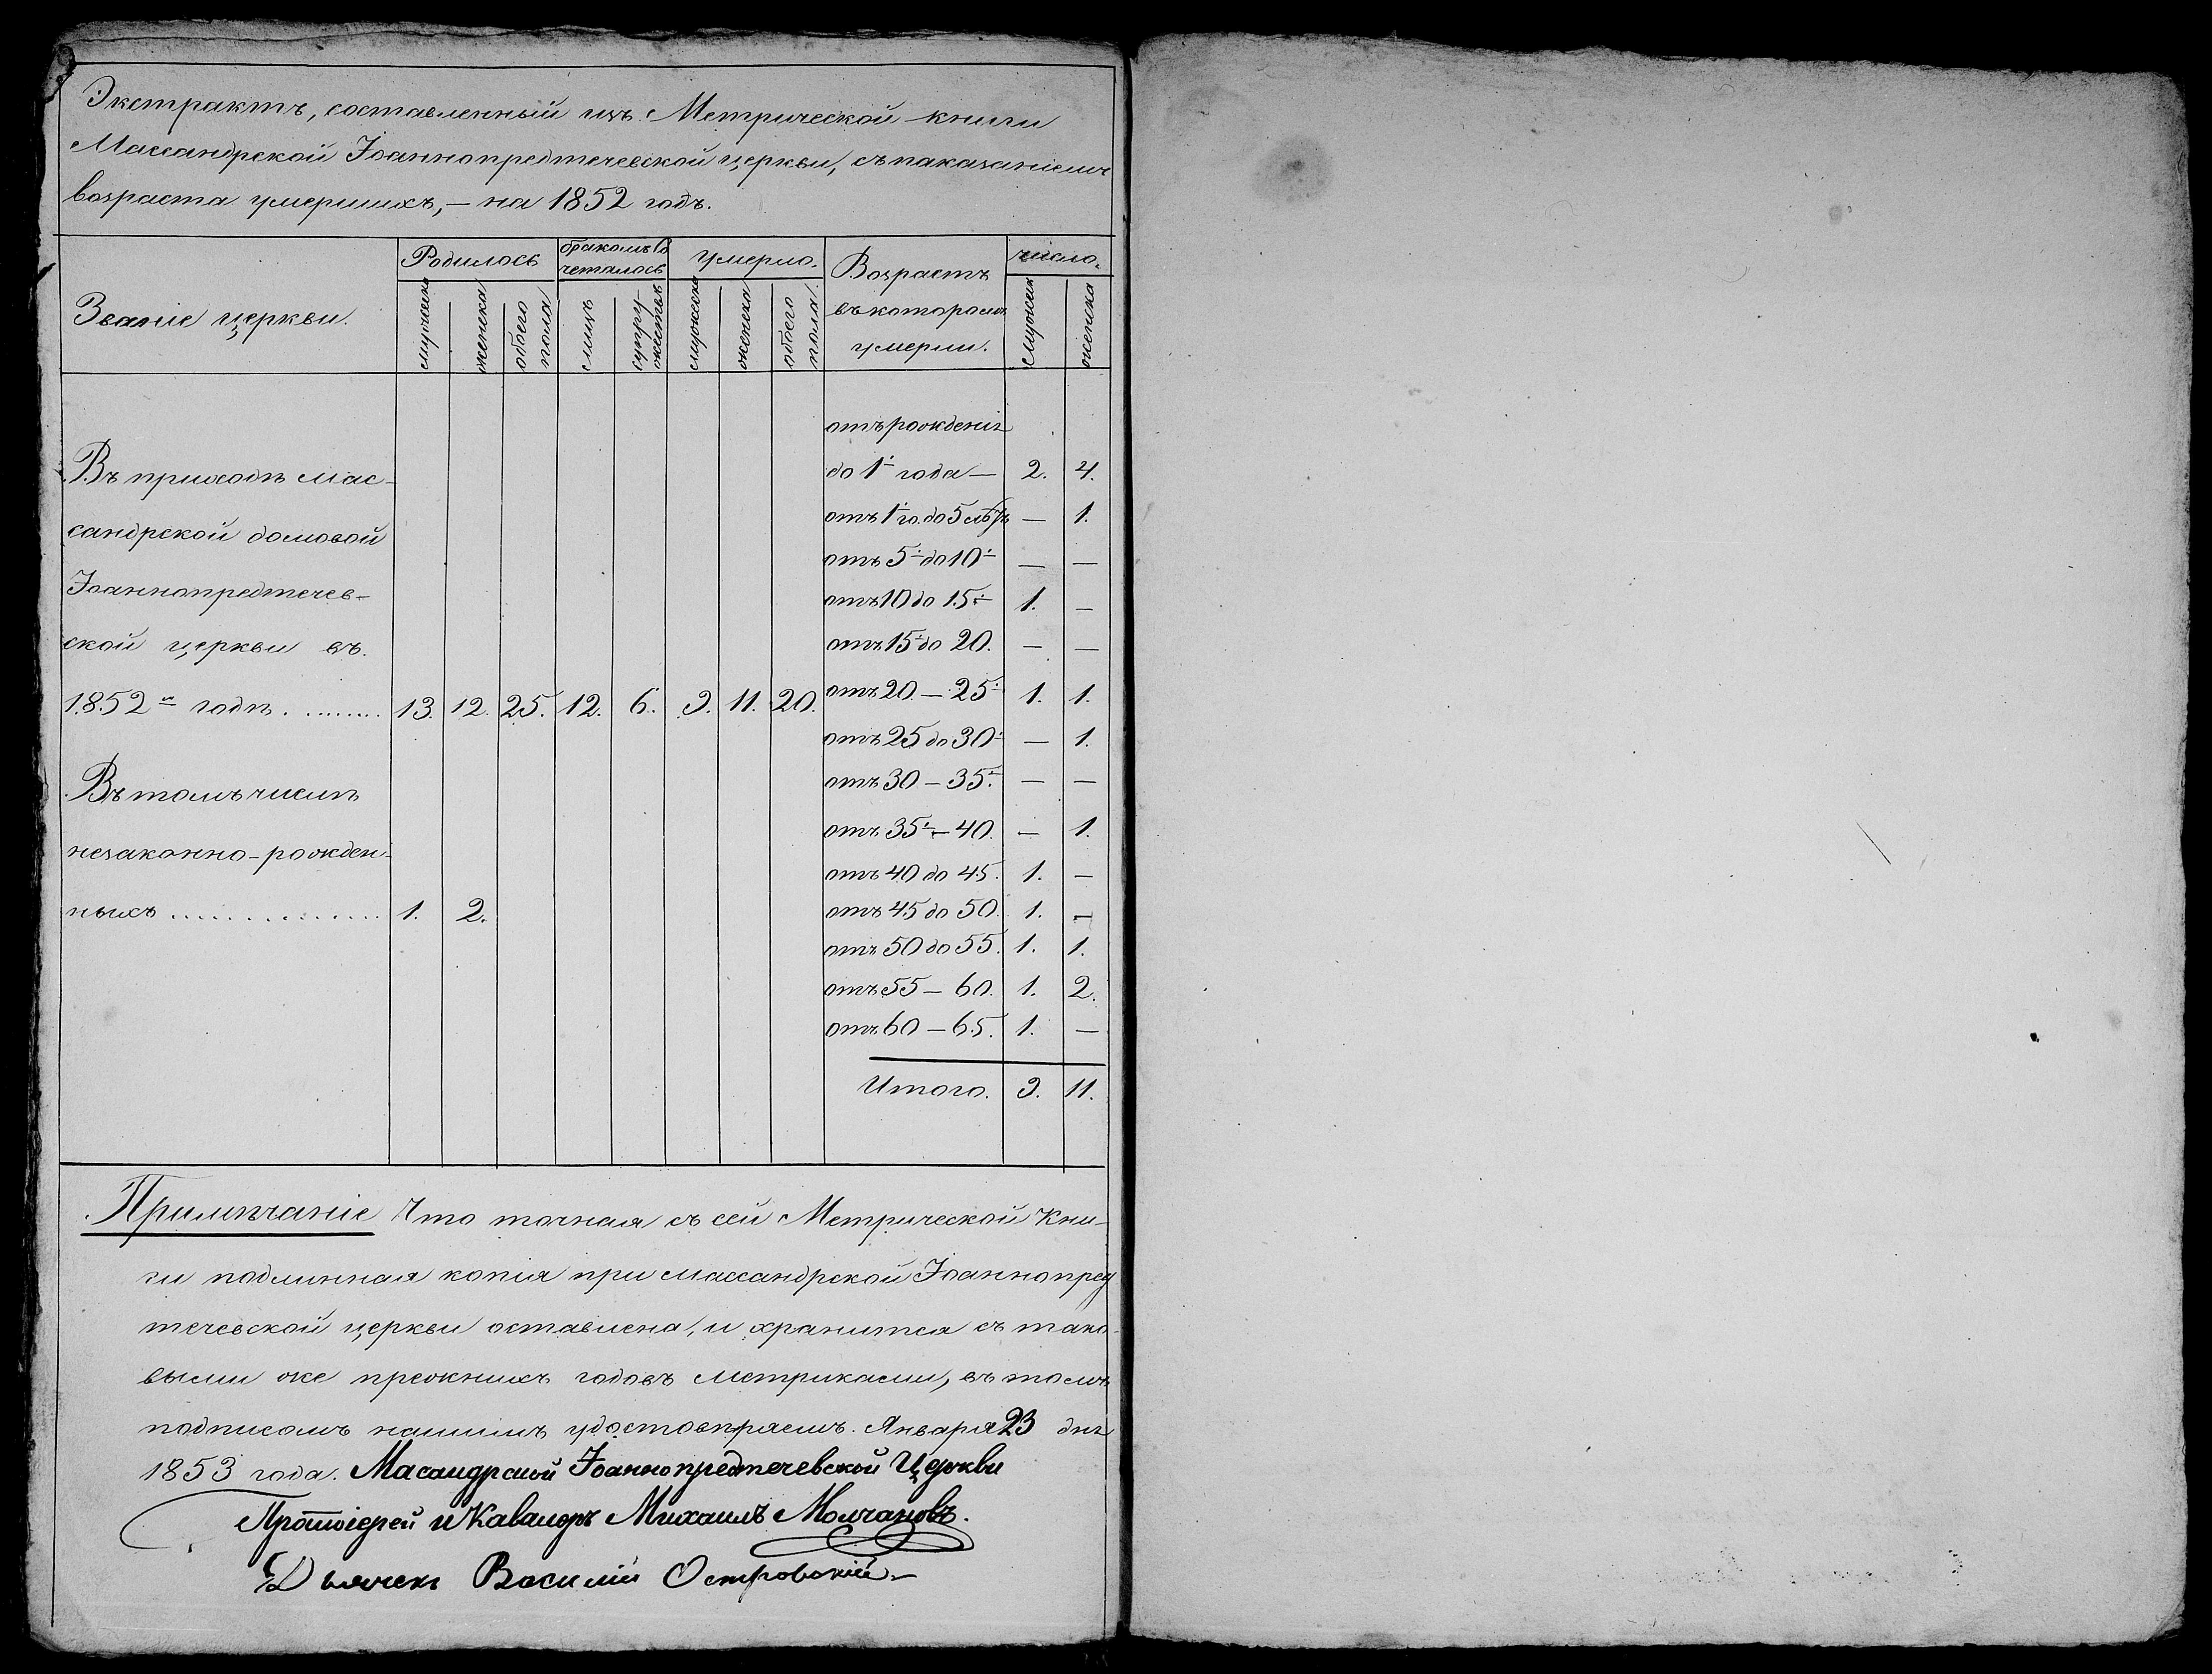 Экстрактъ, составленный изъ Метрической книги
Массандрской Іоаннопредтечевской церкви, съ показаніемъ
возраста умершихъ, — на 1852 годъ.
Званіе церкви.
Родилось
мужеска
женска
обоего пола
бракомъ со-
четалось
лицъ
супру-
жествъ
Умерло.
мужеска
женска
обоего пола
Возрастъ
въ которомъ
умерли.
число.
мужеск
женска
Въ приходѣ Мас-
сандрской домовой
Іоаннопредтечев-
ской церкви въ
1852м годѣ . ........ 13. 12. 25. 12. 6. 9. 11. 20.
Въ томъ числѣ
незаконно-рожден-
ныхъ .............. 1. 2.
отъ рожденія
до 1 года — 2. 4.
отъ 1 го. до 5 лѣтъ — 1.
отъ 5 до 10 — —
отъ 10 до 15 1. —
отъ 15 до 20. — —
отъ 20 — 25 1. 1.
отъ 25 до 30 — 1.
отъ 30 — 35. — —
отъ 35 — 40. — 1.
отъ 40 до 45. 1. —
отъ 45 до 50. 1. —
отъ 50 до 55. 1. 1.
отъ 55 — 60. 1. 2.
отъ 60 — 65. 1. —
Итого. 9. 11.
Примѣчаніе Что точная съ сей Метрической Кни-
ги подлинная копія при Массандрской Іоаннопред
течевской церкви оставлена, и хранится съ тако-
выми же прежнихъ годовъ метриками, въ томъ
подписомъ нашимъ удостовѣряемъ. Января 23 дня
1853 года. Масандрской Іоаннопредтечевской Церкви
Протоіерей и Кавалеръ Михаилъ Молчановъ.
Дьячекъ Василій Островскій